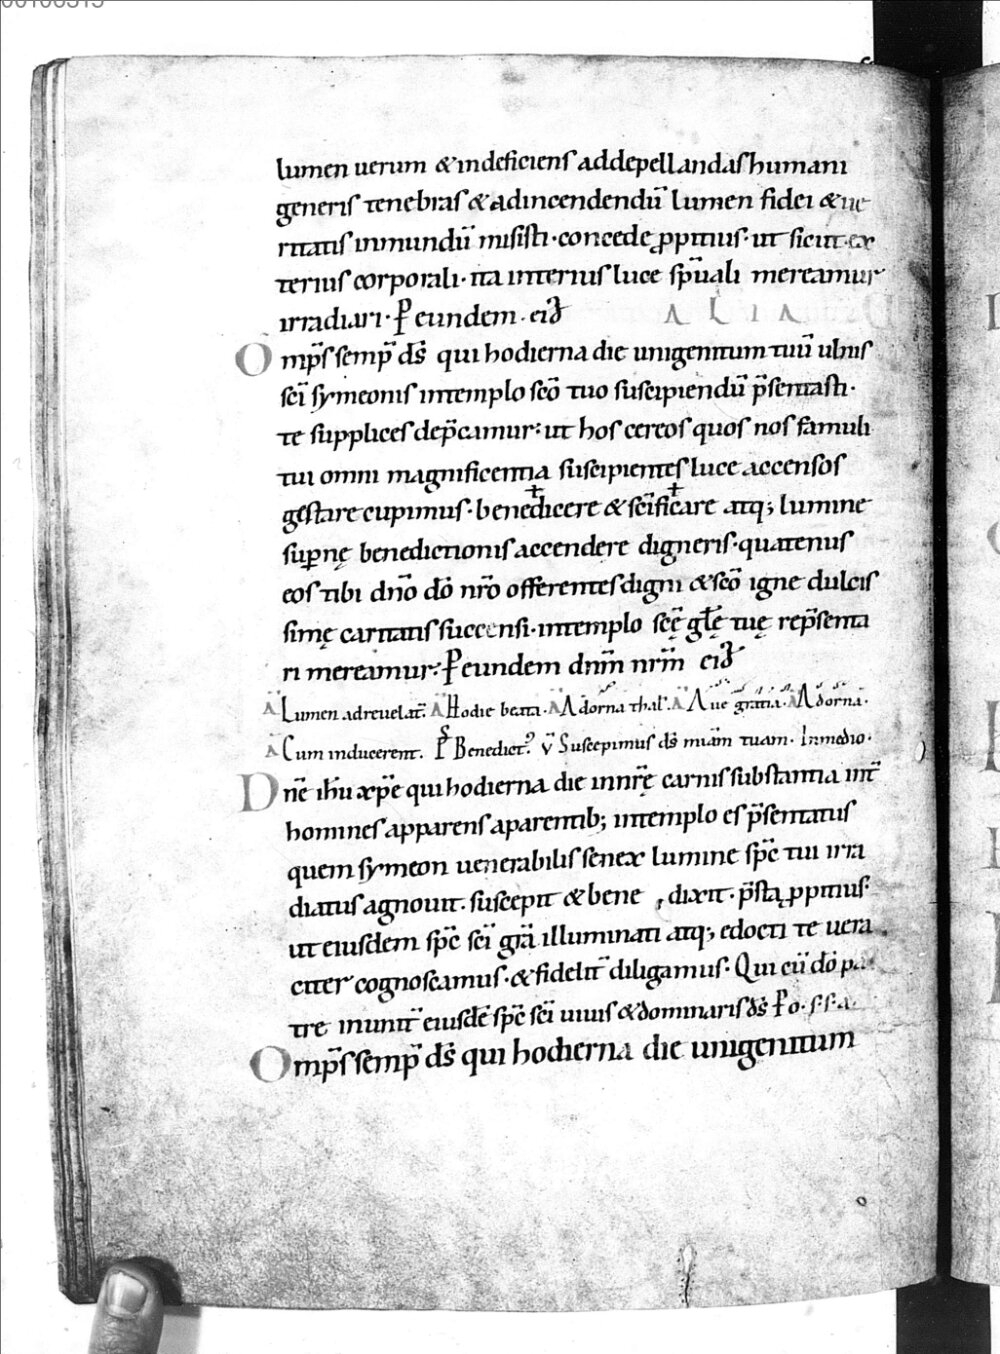 lumen uerum & indeficiens ad depellandas humani
generis tenebras & ad incendendū lumen fidei & ue
ritatis in mundū misisti· concede ꝓpitius· ut sicut ex
terius corporali· ita interius luce sp̄uali mereamur
irradiari· P̄ eundem· eiđ
ALIA
Omp̄s semp̄ d̄s qui hodierna die unigenitum tuū ulnis
sc̄i symeonis in templo sc̄o tuo suscipiendū p̄sentasti·
te supplices dep̄camur: ut hos cereos quos nos famuli
tui omni magnificentia suscipientes luce accensos
gestare cupimus· bene✝dicere & sc̄ifi✝care atq; lumine
sup̄nę benedictionis accendere digneris· quatenus
eos tibi dn̄o dō nr̄o offerentes digni & sc̄o igne dulcis
simę caritatis succensi· in templo sc̄ę gl̄ę tuę rep̄senta
ri mereamur: P̄ eundem dn̄m nr̄m eiđ
A̅ Lumen ad reuelat̄. A̅ Hodie beata· A̅ Adorna thal̄· A̅ Aue gratia· A̅ Adorna·
A̅ Cum inducerent. Benedict⁹. v̄ Suscepimus d̄s miām tuam· In medio·
Dn̄e ih̄u xp̄e qui hodierna die in nr̄ę carnis substantia int̄
homines apparens a parentib; in templo es p̄sentatus
quem symeon uenerabilis senex lumine sp̄c tui irra
diatus agnouit· suscepit & bene dixit· p̄sta ꝓpitius·
ut eiusdem sp̄c sc̄i grā illuminati atq; edocti te uera
citer cognoscamus· & fidelit̄ diligamus· Qui cū dō pa
tre in unit̄ eiusdē sp̄c sc̄i uiuis & dominaris d̄s P̄o· s·s·a·
Omp̄s semp̄ d̄s qui hodierna die unigenitum